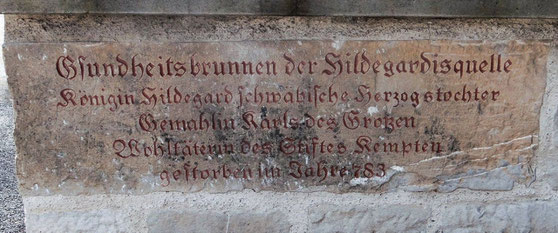 Gsundheitsbrunnen der Hildegardisquelle
Königin Hildegard schwäbische Herzogstochter
Gemahlin Karls des Großen
Wohltäterin des Stiftes Kempten
gestorben im Jahre 783